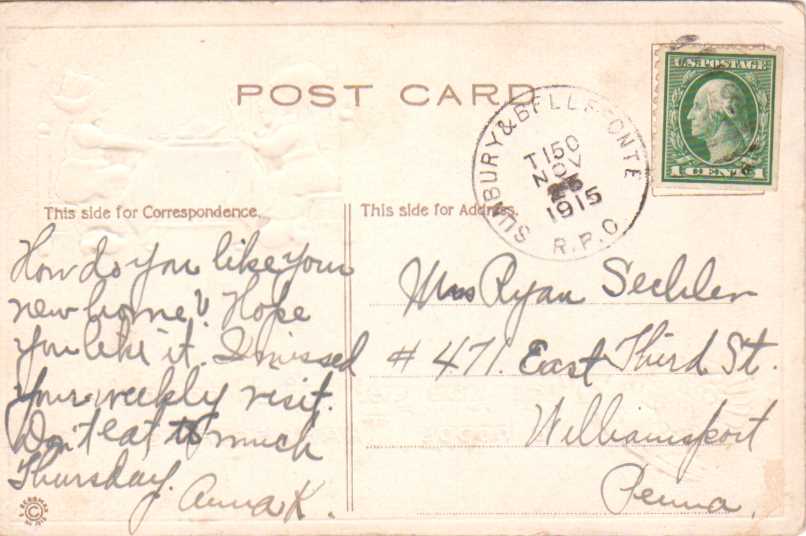 POST CARD
U.S. POSTAGE
1 CENT 1
SUNBURY & BELLEFONTE
T150
NOV
1915
R.P.O.
This side for Correspondence.
This side for Address.
How do you like your
new home? Hope
you like it. I missed
your weekly visit.
Don't eat to much
Thursday.
Anna K.
Mrs Ryan Sechler
# 471. East Third St.
Williamsport
Penna.
©